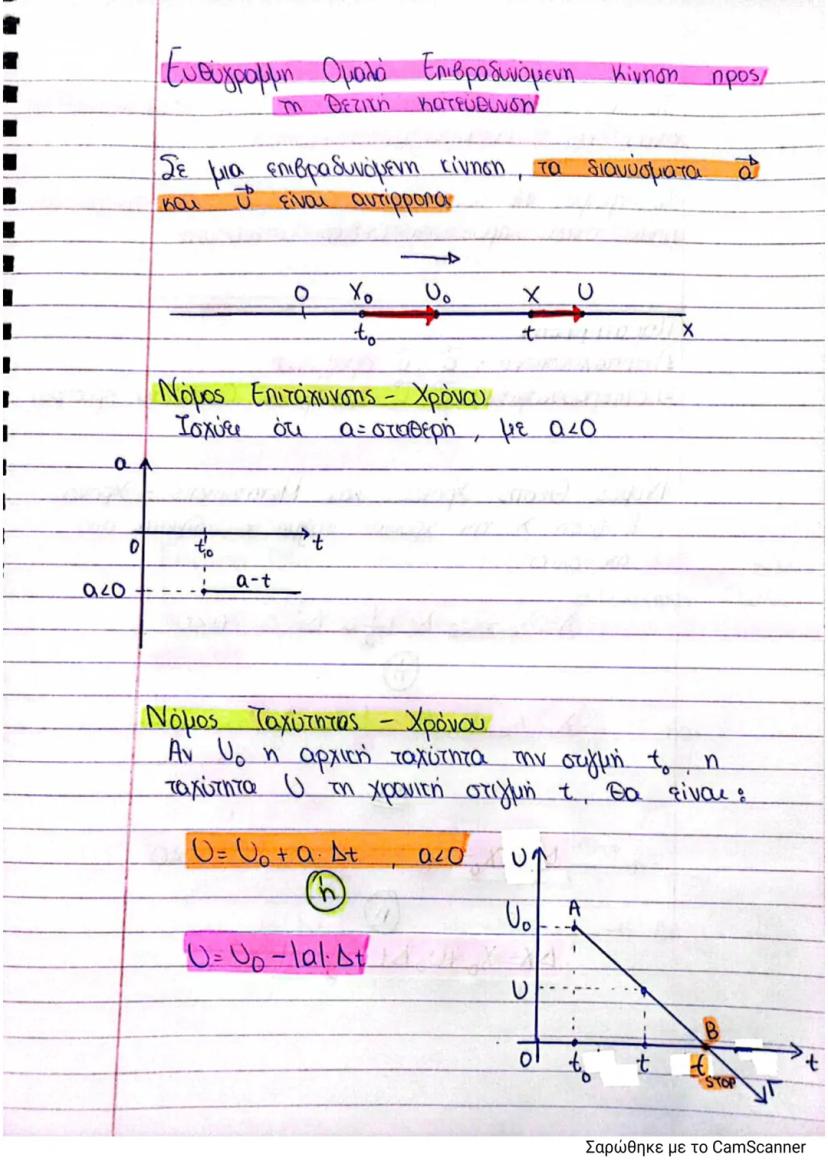 Ευθύγραμμη Ομαλά Επιβραδυνόμενη Κίνηση προς
τη θετική κατεύθυνση
Σε μια επιβραδυνόμενη κίνηση, τα διανύσματα a⃗
και υ⃗ είναι αντίρροπα
0 X₀ U₀ X U
t₀ t x
Νόμος Επιτάχυνσης - Χρόνου
Ισχύει ότι a=σταθερή, με a<0
a
0 t₀ t
a<0 a-t
Νόμος Ταχύτητας - Χρόνου
Αν U₀ η αρχική ταχύτητα την στιγμή t₀, η
ταχύτητα U τη χρονική στιγμή t, θα είναι:
U = U₀ + a · Δt, a<0
ή
U = U₀ - |a| · Δt
U
U₀ A
U
B
0 t₀ t t STOP t
Γ
Σαρώθηκε με το CamScanner